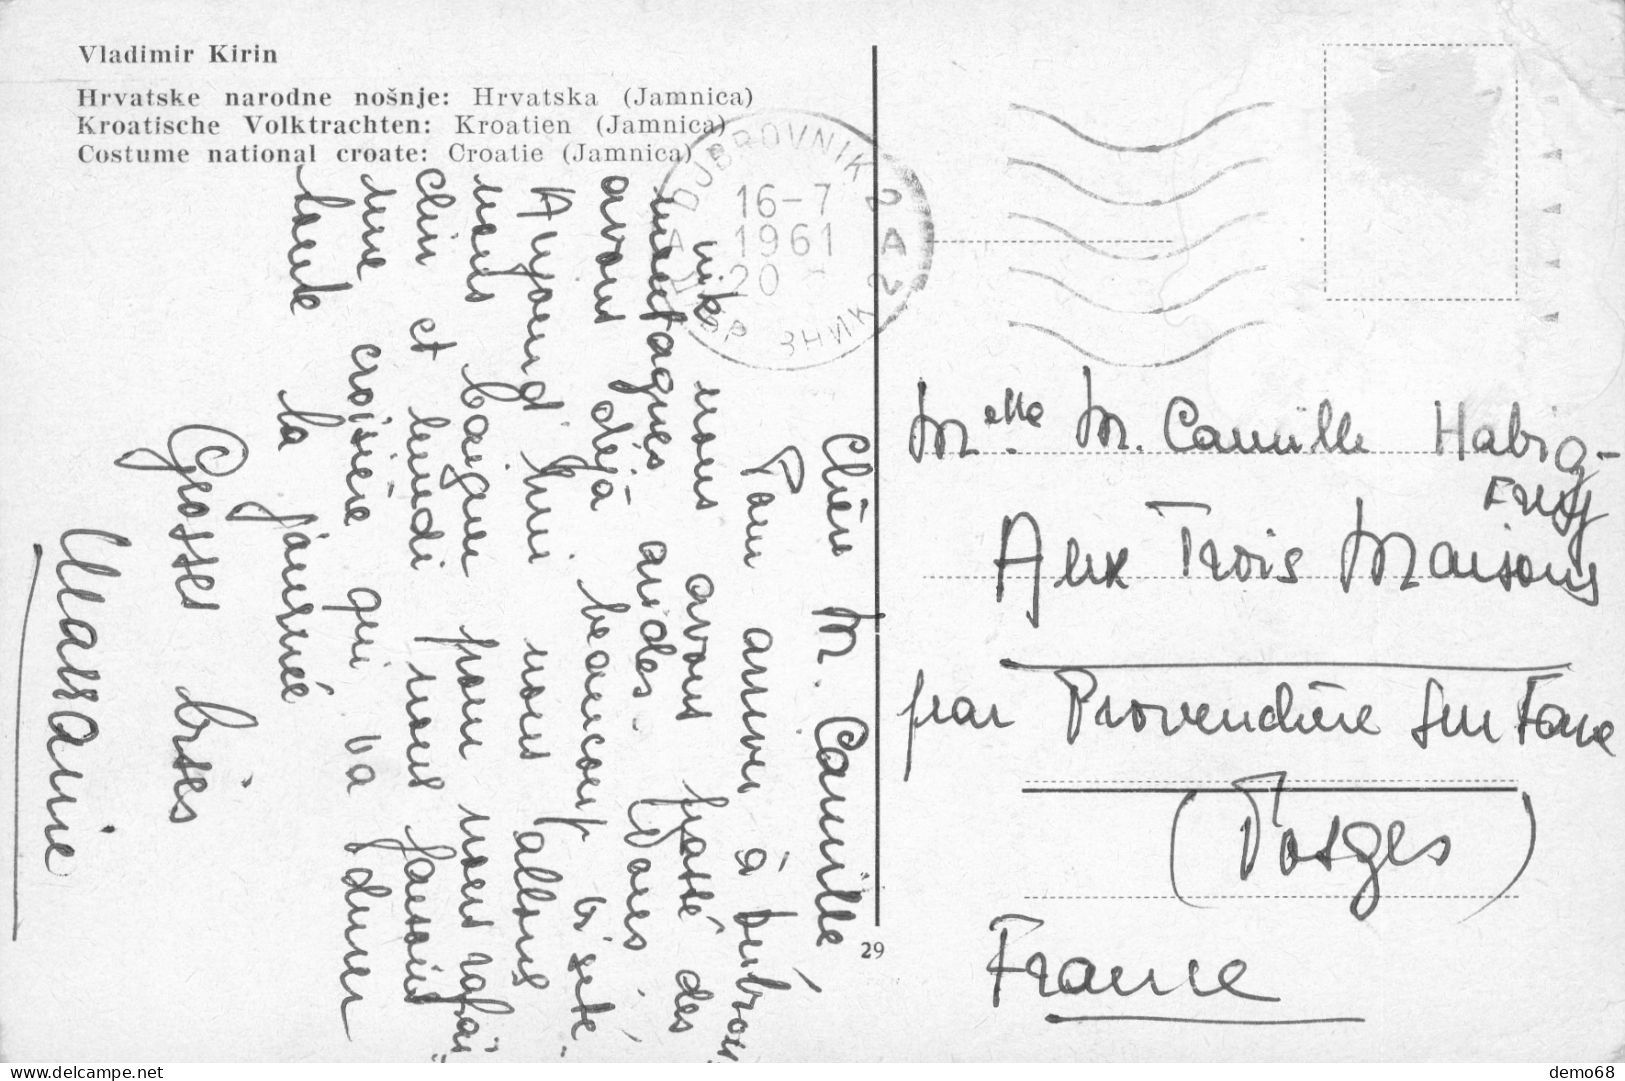 Vladimir Kirin
Hrvatske narodne nošnje: Hrvatska (Jamnica)
Kroatische Volktrachten: Kroatien (Jamnica)
Costume national croate: Croatie (Jamnica)
DUBROVNIK 2
16-7
1961
20
A
2
Chère M. Camille
Pour arriver à Dubrov
nik nous avons passé des
montagnes arides. Nous
avons déjà beaucoup visité.
Aujourd'hui nous allons
nous baigner pour nous rafraî
chir et lundi nous faisons
une croisière qui va durer
toute la journée
Grosses bises
Massanie
29
Melle M. Camille Habig-
Aux Trois Maisons
par Provenchère sur Fave
(Vosges)
France
demo68